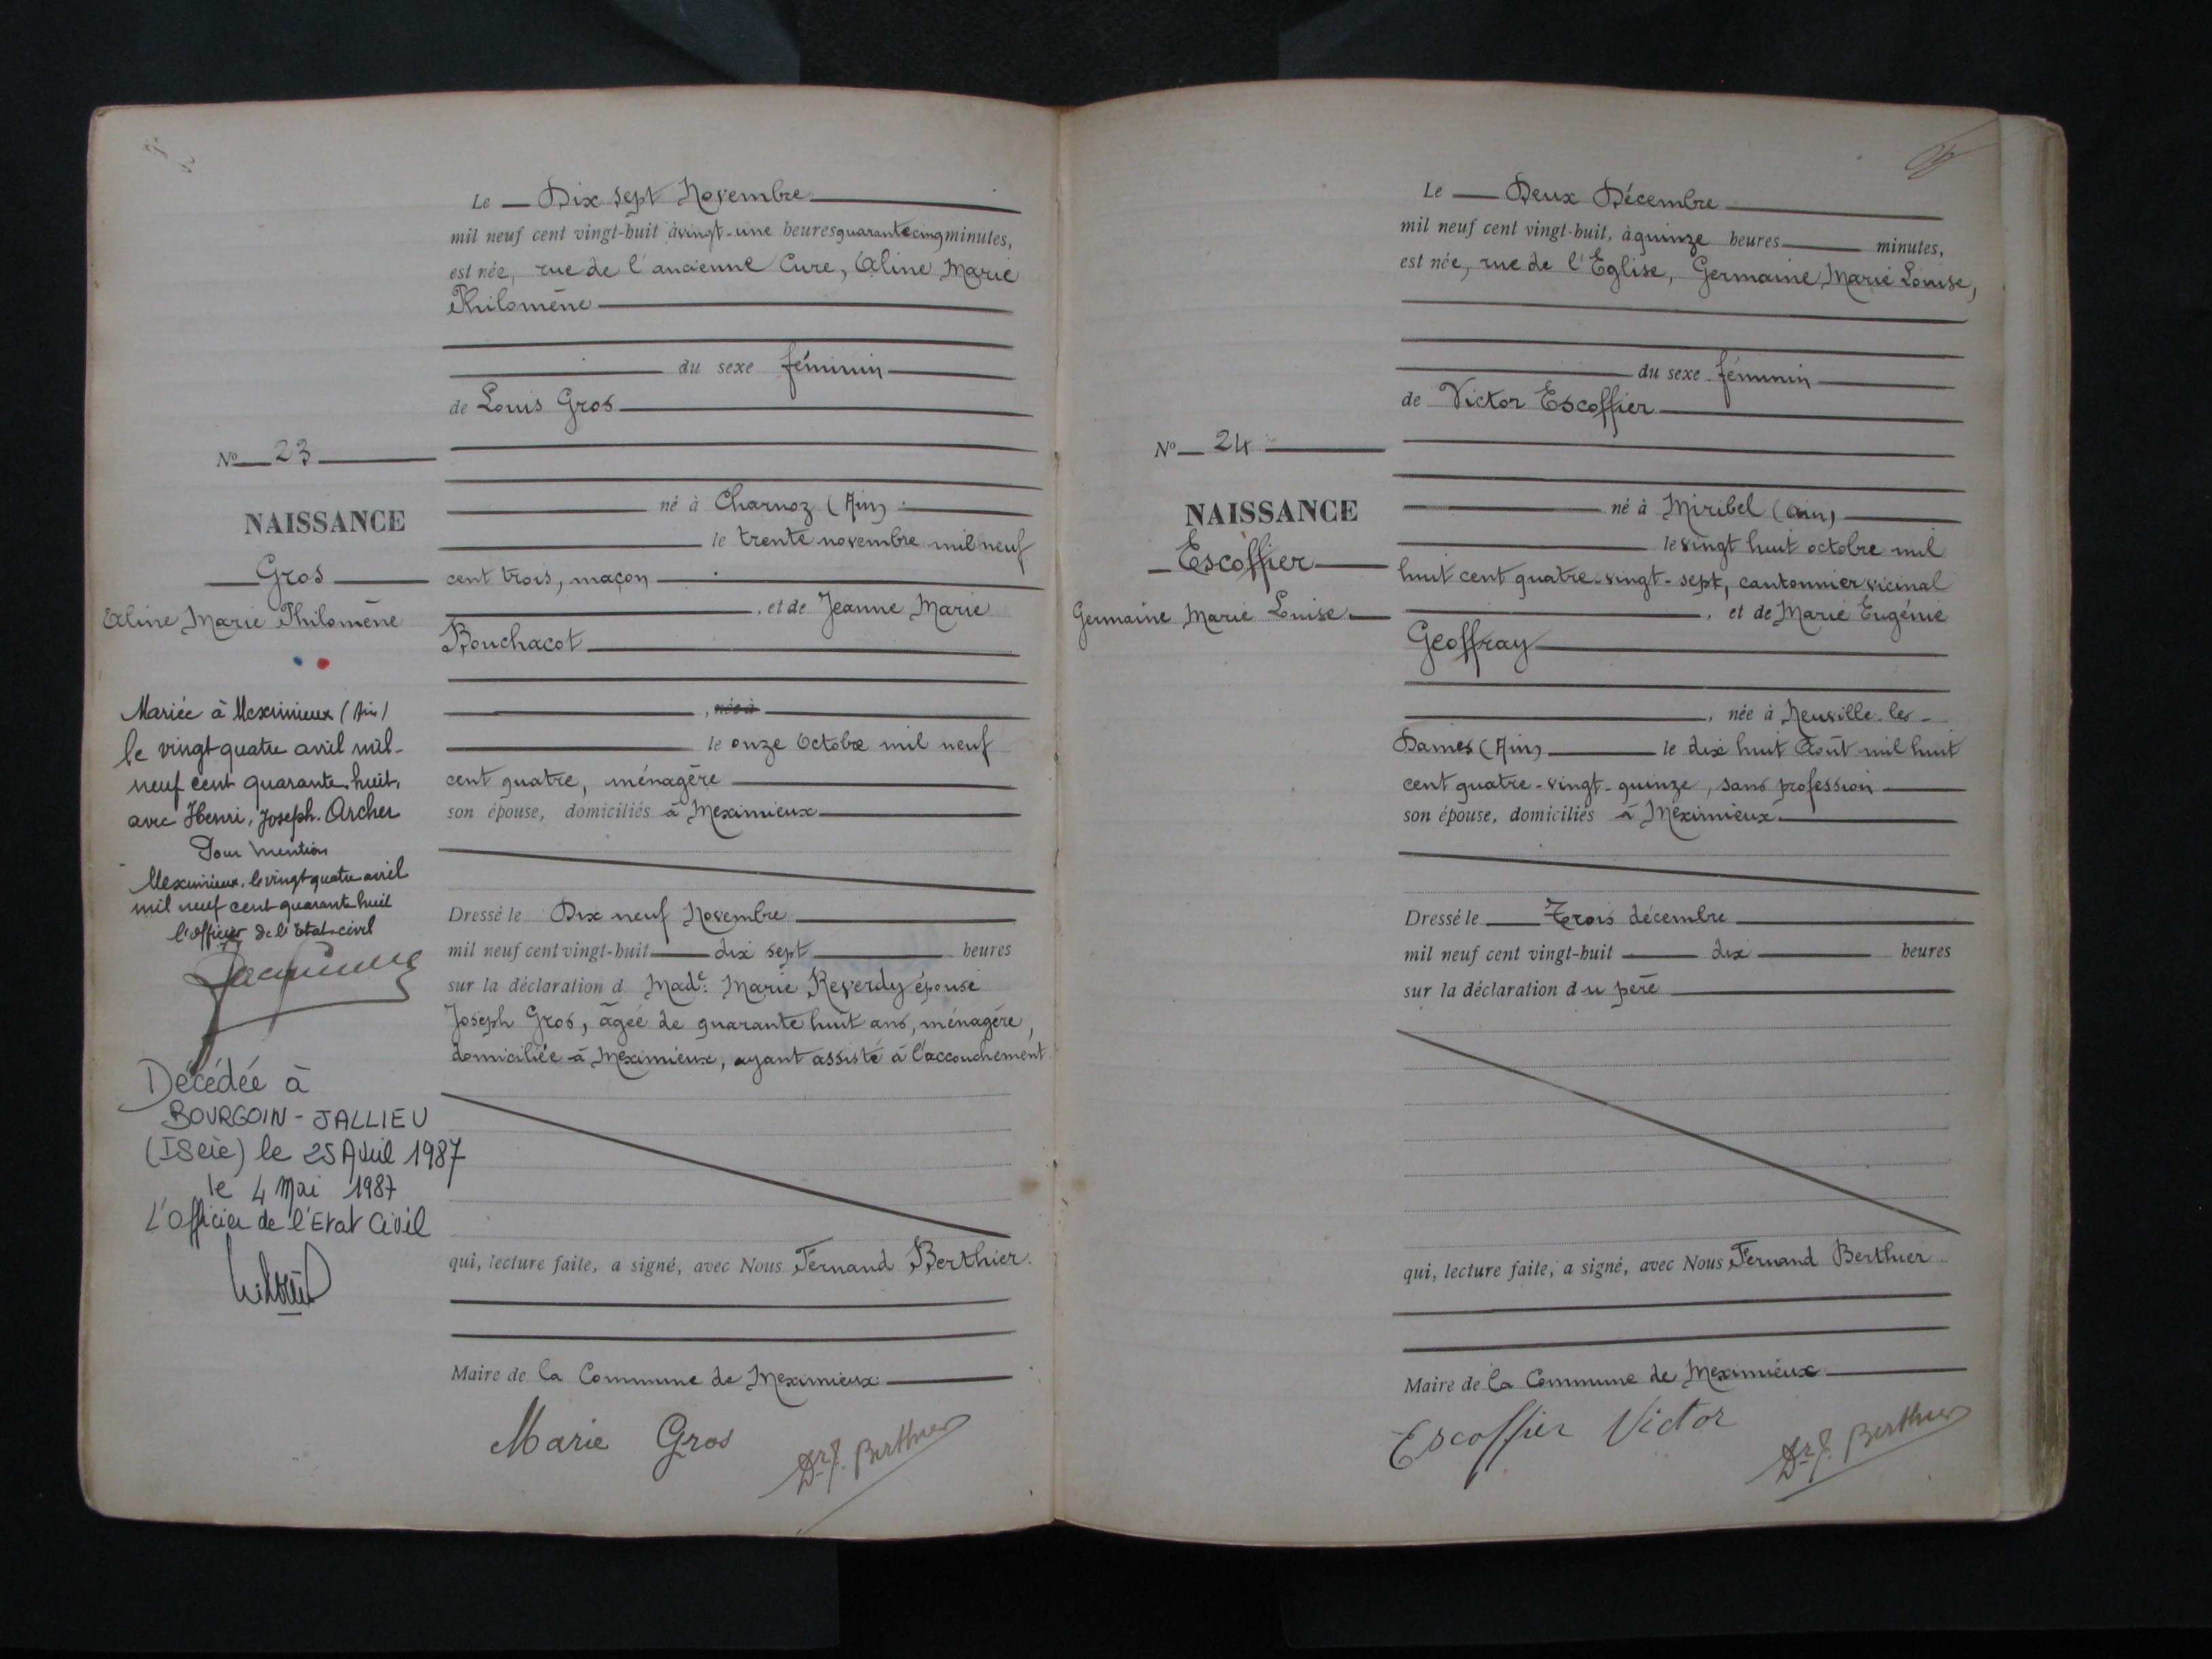 Le Dix sept Novembre
mil neuf cent vingt-huit à vingt-une heures quarante cinq minutes,
est née, rue de l'ancienne Cure, Aline Marie
Philomène
du sexe féminin
de Louis Gros
né à Charnoz (Ain)
le trente novembre mil neuf
cent trois, maçon
, et de Jeanne Marie
Bouchacot
, née à
le onze Octobre mil neuf
cent quatre, ménagère
son épouse, domiciliés à Meximieux
Dressé le Dix neuf Novembre
mil neuf cent vingt-huit dix sept heures
sur la déclaration d Made Marie Reverdy épouse
Joseph Gros, âgée de quarante huit ans, ménagère,
domiciliée à Meximieux, ayant assisté à l'accouchement
qui, lecture faite, a signé, avec Nous Fernand Berthier.
Maire de la Commune de Meximieux
Marie Gros
Dr f. Berthier
No 23
NAISSANCE
Gros
Aline Marie Philomène
Mariée à Meximieux (Ain)
le vingt quatre avril mil-
neuf cent quarante huit,
avec Henri, Joseph. Archer
Pour Mention
Meximieux, le vingt quatre avril
mil neuf cent quarante huit
l'officier de l'Etat-civil
Décédée à
BOURGOIN-JALLIEU
(ISère) le 25 Avril 1987
le 4 Mai 1987
L'Officier de l'Etat Civil
Le Deux Décembre
mil neuf cent vingt-huit, à quinze heures minutes,
est née, rue de l'Eglise, Germaine Marie Louise,
du sexe féminin
de Victor Escoffier
né à Miribel (Ain)
le vingt huit octobre mil
huit cent quatre-vingt-sept, cantonnier vicinal
, et de Marie Eugénie
Geoffray
, née à Neuville-les-
Dames (Ain) le dix huit Août mil huit
cent quatre-vingt-quinze, sans profession
son épouse, domiciliés à Meximieux
Dressé le Trois décembre
mil neuf cent vingt-huit dix heures
sur la déclaration du père
qui, lecture faite, a signé, avec Nous Fernand Berthier
Maire de la Commune de Meximieux
Escoffier Victor
Dr f. Berthier
No 24
NAISSANCE
Escoffier
Germaine Marie Louise